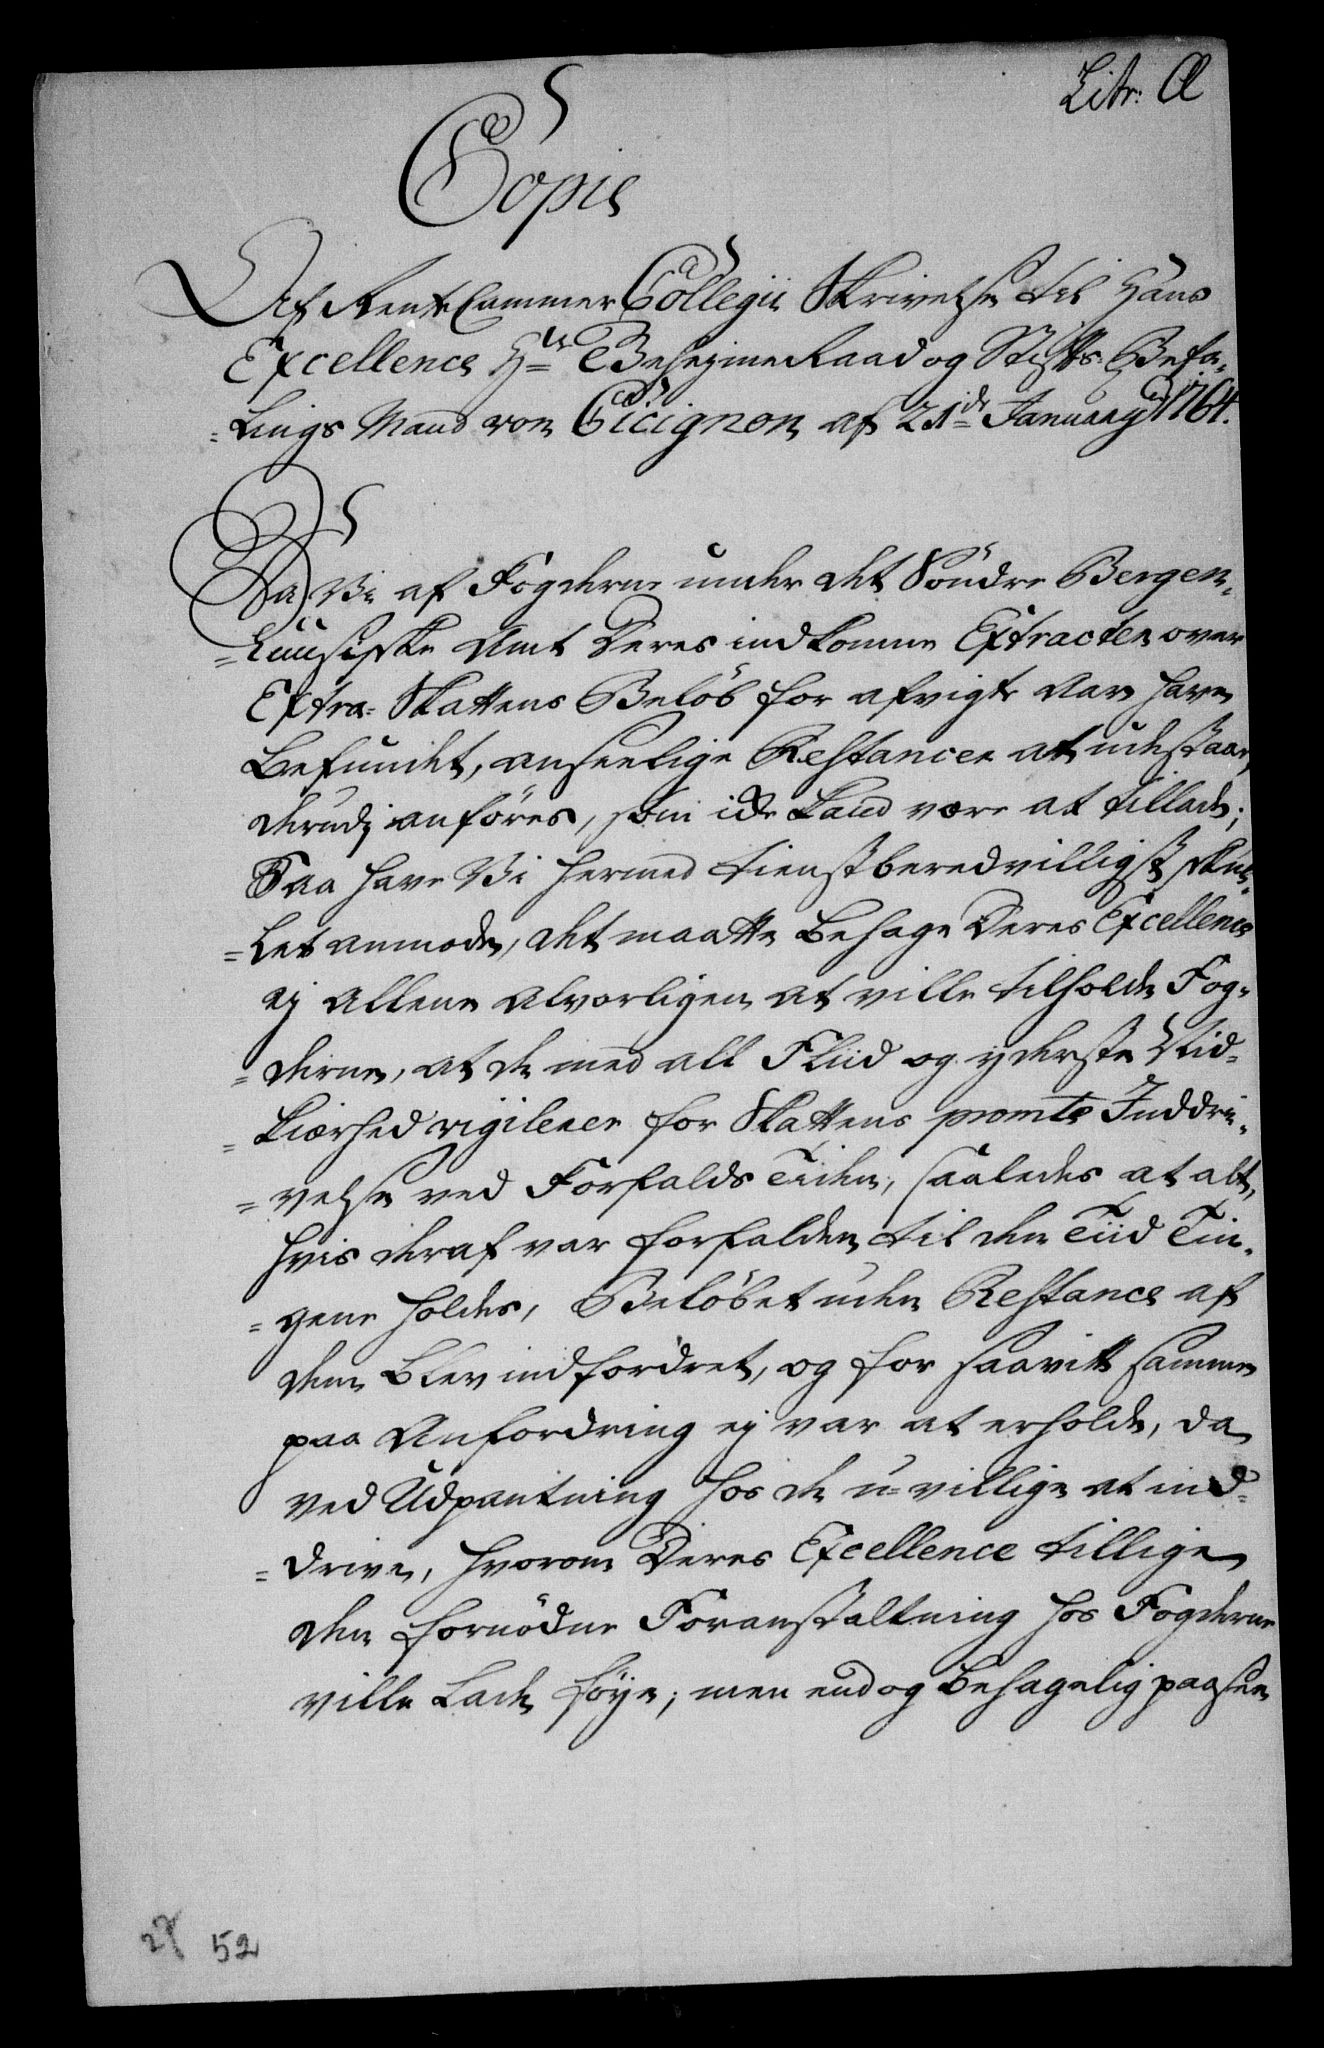 Litr: Æ
Copie
Af Rente Cammer Collegii Skrivelse til Hans
Excellence Hr Geheyme Raad og Stifts Befa-
=lings Mand von Cicignon af 21de January 1764.
Da Vi af Fogderne under det Söndre Bergen-
=huusiske Amt Deres indkomne Extracter over
Extra-Skattens Belöb for afvigte Aar have
befundet, anseelige Restancer at udestaae,
derudj anföres, som icke kand være at tillade;
Saa have Vi hermed tienstberedvilligst skul-
=let anmode, det maatte behage Deres Excellence
ej allene alvorligen at ville tilholde Fog-
=derne, at de med all Fliid og yderste Vid-
=kiørhed vigilerer for Skattens promte Inddri-
=velse ved Forfalds Tiden, saaledes at alt,
hvis deraf var forfalden til den Tiid Tin-
=gene holdes, Belöbet uden Restance af
dem blev indfordret, og for saavitt samme
paa Anfordring ej var at erholde, da
ved Udpantning hos de u-villige at ind-
=drive, hvorom Deres Excellence tillige
den fornödne Foranstaltning hos Fogderne
ville lade föye; men endog behagelig paasee
52